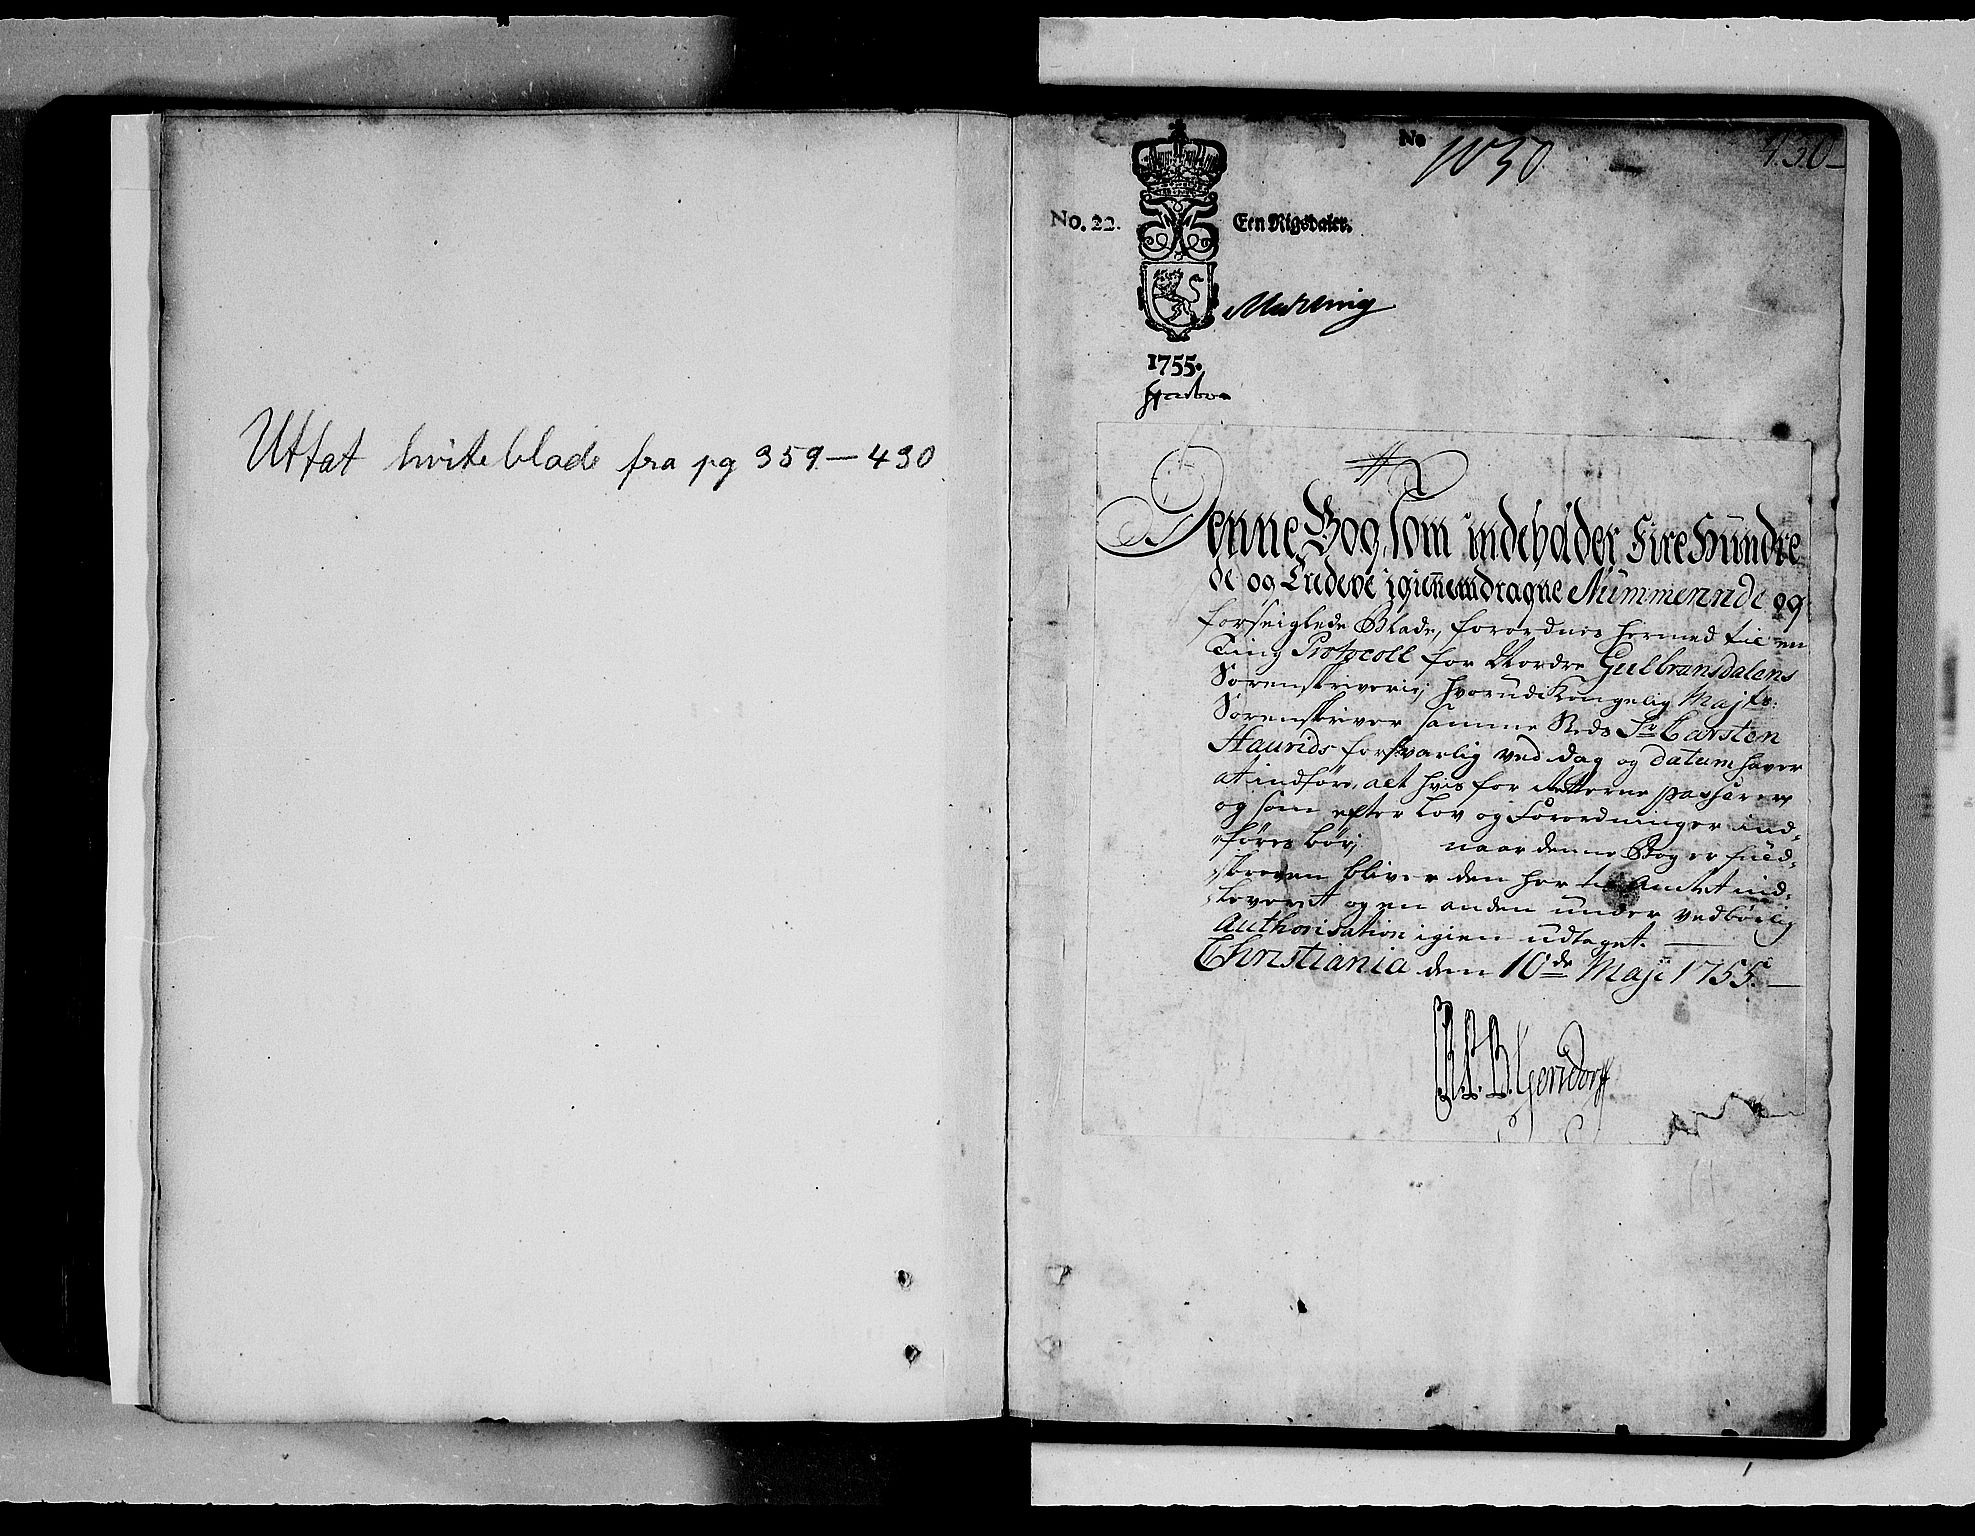 Uttat hvite blade fra pg 359 – 430
No 1030.
430
No. 22. Een Rigsdaler.
1755.
Denne Bog, som indeholder Fire Hundre
de og Tredeve igiennemdragne Nummererede og
forseiglede Blade, forordnes hermed til en
Ting Protocoll for Nordre Gulbransdalens
Sorenskriverie; hvorudi Kongelig Majts.
Sorenskriver samme Steds Sr. Carsten
Haurids forsvarlig ved dag og datum haver
at indføre, alt hvis for Retterne passerer
og som efter Lov og Forordninger ind-
føres bør, naar denne Bog er fuld-
skreven bliver den her til Amtet ind-
leveret og en anden under vedbørlig
Authorisation igien udtaget. —
Christiania den 10de Maji 1755. —